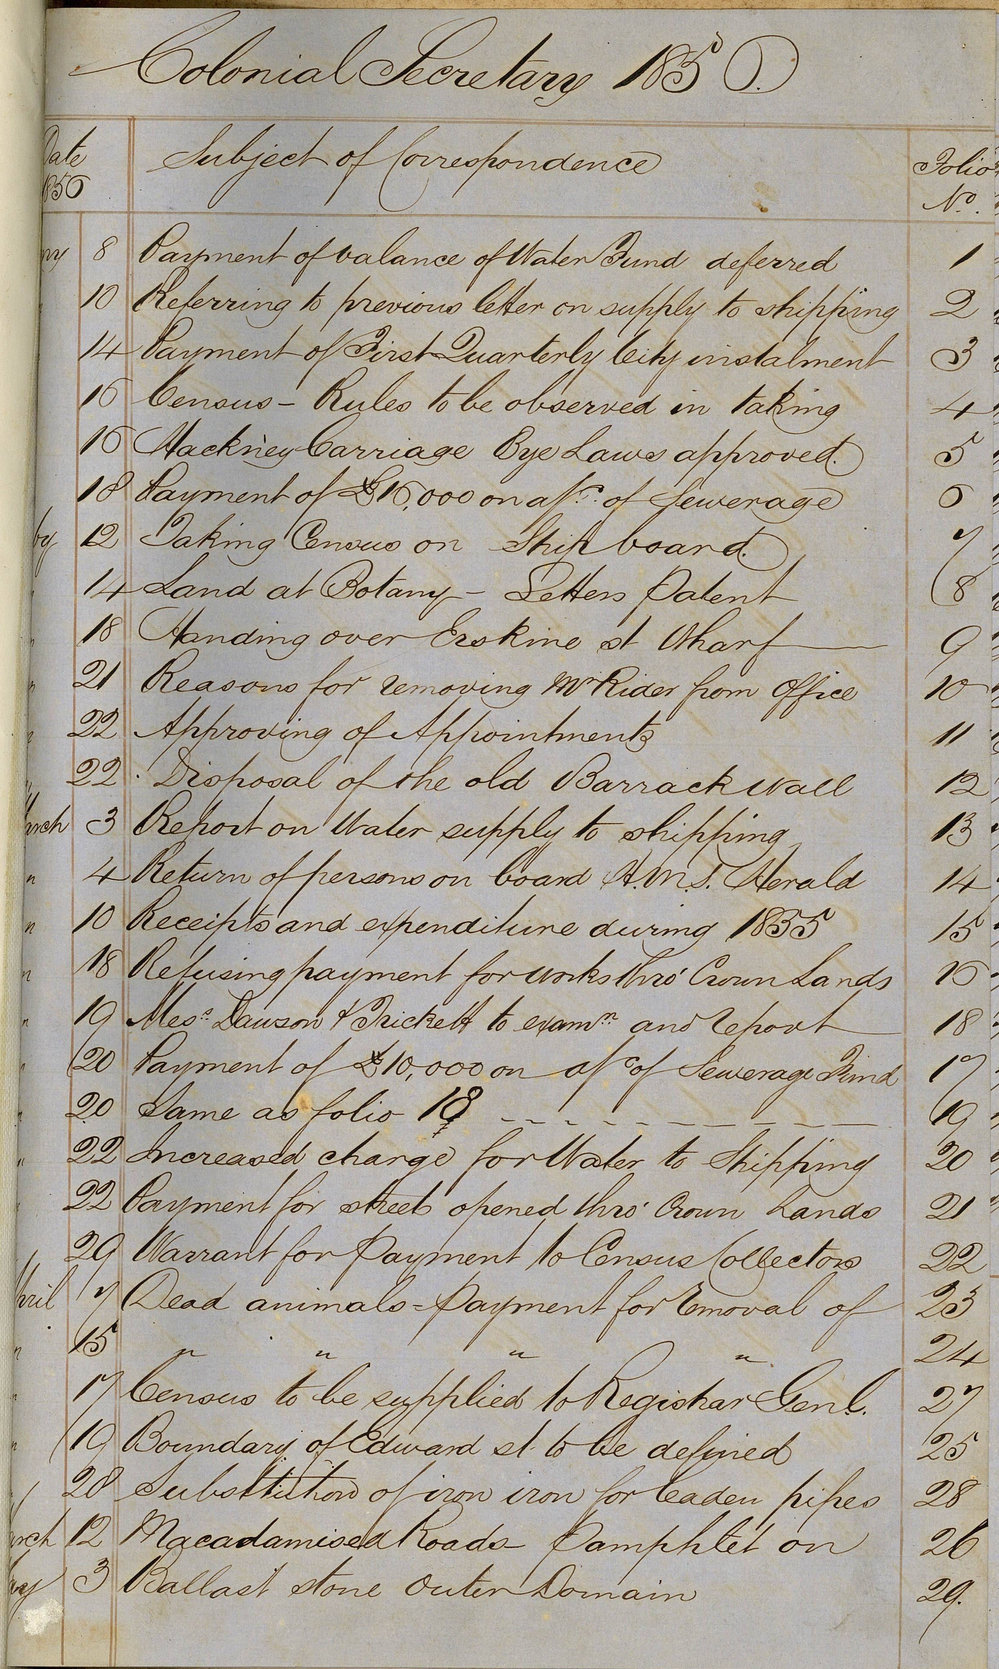 Colonial Secretary 1856.
Date Subject of Correspondence Folio
1856 No.
ry 8 Payment of balance of Water Fund deferred 1
10 Referring to previous letter on supply to shipping 2
14 Payment of First Quarterly City instalment 3
16 Census - Rules to be observed in taking 4
16 Hackney Carriage Bye Laws approved. 5
18 Payment of £16,000 on a/c. of Sewerage 6
by 12 Taking Census on Ship board. 7
14 Land at Botany - Letters Patent 8
18 Handing over Erskine st Wharf 9
21 Reasons for removing Mr Rider from Office 10
22 Approving of Appointments 11
22 Disposal of the old Barrack Wall 12
arch 3 Report on Water supply to shipping 13
" 4 Return of persons on board H.M.S. Herald 14
" 10 Receipts and expenditure during 1855 15
" 18 Refusing payment for works thro' Crown Lands 16
" 19 Mess. Dawson & Brickett to examn. and report 18
20 Payment of £10,000 on a/c of Sewerage Fund 17
20 Same as folio 18 - - - - - - - - - 19
22 Increased charge for Water to Shipping 20
22 Payment for streets opened thro' Crown Lands 21
29 Warrant for Payment to Census Collectors 22
pril 7 Dead animals = Payment for removal of 23
" 15 " " " " 24
17 Census to be supplied to Registrar Genl. 27
" 19 Boundary of Edward st to be defined 25
28 Substitution of iron iron for leaden pipes 28
arch 12 Macadamised Roads - Pamphlet on 26
ay 3 Ballast stone Outer Domain 29.